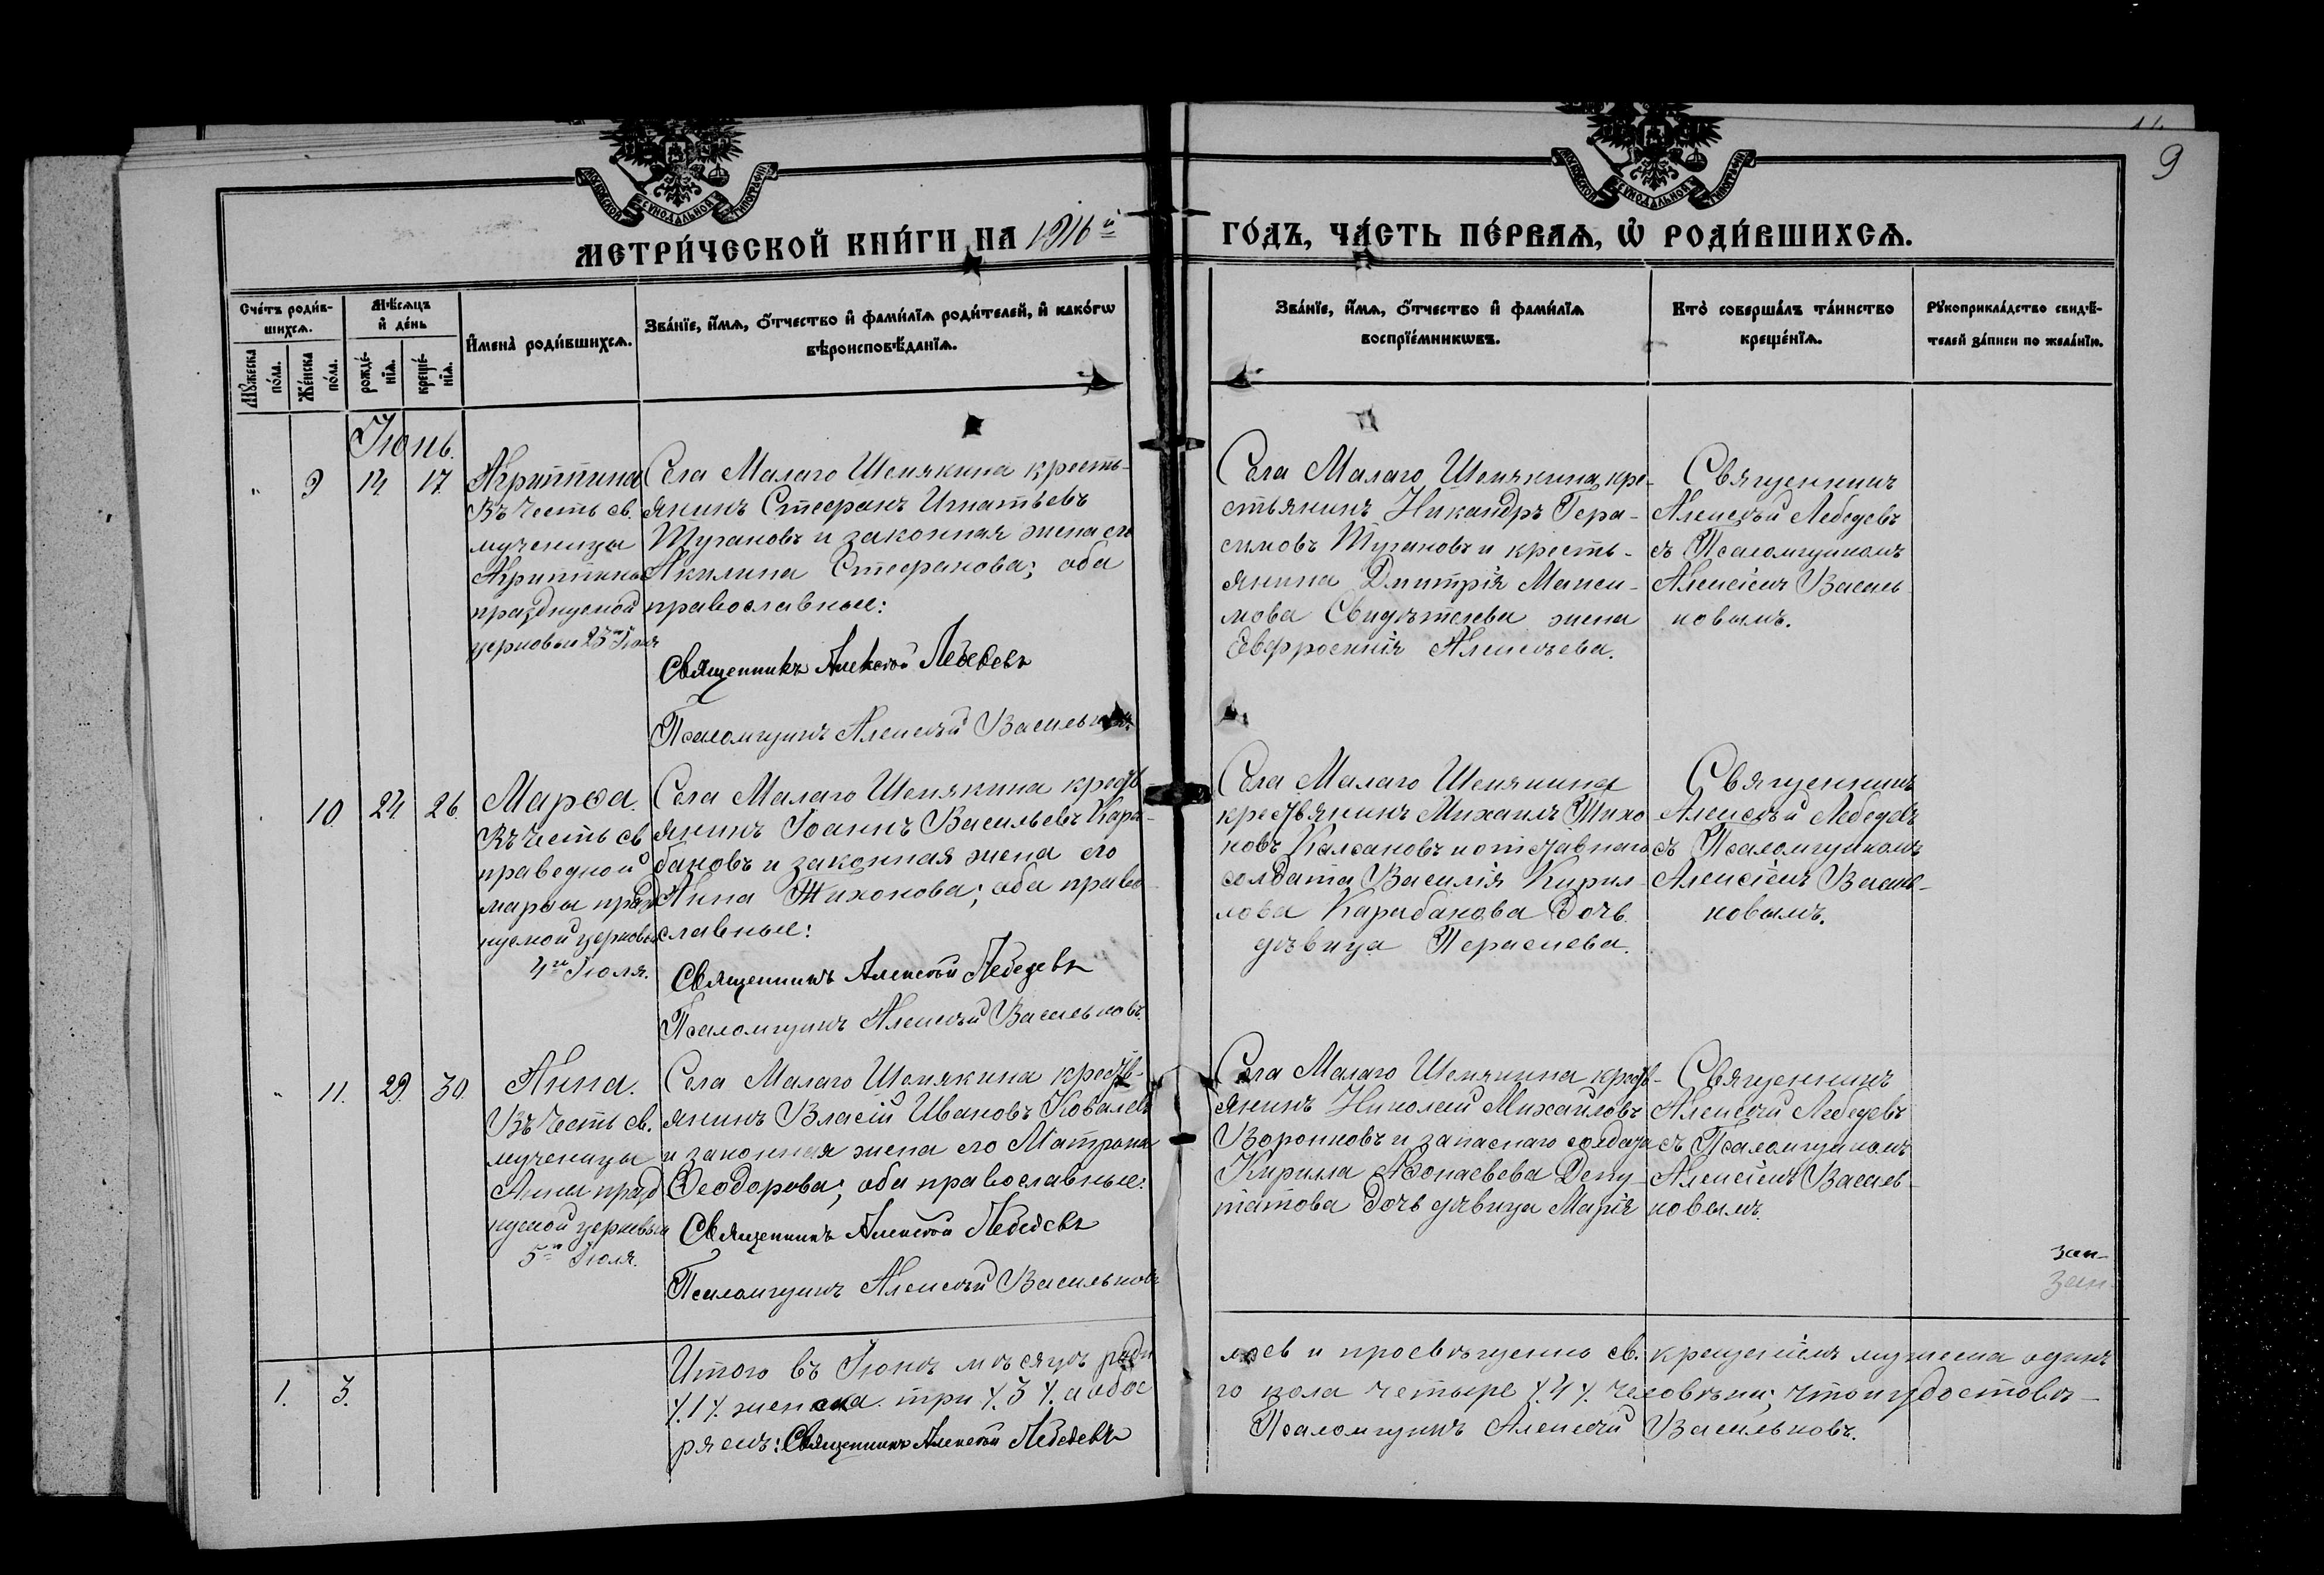 9
МОСКОВСКОЙ СУНОДАЛЬНОЙ ТИПОГРАФІИ
МОСКОВСКОЙ СУНОДАЛЬНОЙ ТИПОГРАФІИ
МЕТРИ́ЧЕСКОЙ КНИ́ГИ НА 1916й
ГО́ДЪ, ЧА́СТЬ ПЕ́РВАѦ, Ѡ РОДИ́ВШИХСѦ.
Сче́тъ роди́в-
шихсѧ.
Мꙋ́жеска по́ла.
Же́нска по́ла.
Мѣ́сѧцъ
и҆ де́нь
рожде́-
нїѧ.
креще́-
нїѧ.
И҆мена̀ роди́вшихсѧ.
Зва́нїе, и҆́мѧ, ѻ҆́тчество и҆ фами́лїѧ роди́телей, и҆ како́гѡ
вѣроисповѣ́данїѧ.
Зва́нїе, и҆́мѧ, ѻ҆́тчество и҆ фами́лїѧ
воспрїе́мникѡвъ.
Кто̀ соверша́лъ та́инство
креще́нїѧ.
Рꙋкоприкла́дство свидѣ́-
телей за́писи по жела́нїю.
Іюнь.
" 9 14 17
Агриппина
Въ честь св.
мученицы
Агриппины
празднуемой
церковью 23го Іюня
Села Малаго Шемякина кресть-
янинъ Стефанъ Игнатьевъ
Тугановъ и законная жена его
Акилина Стефанова; оба
православные:
Священникъ Алексѣй Лебедевъ
Псаломщикъ Алексѣй Васильковъ.
Села Малаго Шемякина кре-
стьянинъ Никандръ Гера-
симовъ Тугановъ и кресть-
янина Димитрія Макси-
мова Свидѣтелева жена
Евфросинія Алексѣева.
Священникъ
Алексѣй Лебедевъ
съ Псаломщикомъ
Алексіемъ Василь
ковымъ.
10. 24 26.
Марѳа.
Въ честь св
праведной
Марѳы празд
нуемой церковью
4го Іюля.
Села Малаго Шемякина кресть
янинъ Іоаннъ Васильевъ Кара-
бановъ и законная жена его
Анна Тихонова; оба право-
славные:
Священникъ Алексѣй Лебедевъ
Псаломщикъ Алексѣй Васильковъ.
Села Малаго Шемякина
крестьянинъ Михаилъ Тихо
новъ Калсановъ и отставнаго
солдата Василія Кирил-
лова Карабанова дочь
дѣвица Параскева.
Священникъ
Алексѣй Лебедевъ
съ Псаломщикомъ
Алексіемъ Василь-
ковымъ.
" 11. 29. 30.
Анна.
Въ честь св.
мученицы
Анны празд
нуемой церковью
5го Іюля.
Села Малаго Шемякина кресть-
янинъ Власій Ивановъ Ковалевъ
и законная жена его Матрона
Ѳеодорова; оба православные:
Священникъ Алексѣй Лебедевъ
Псаломщикъ Алексѣй Васильковъ
Села Малаго Шемякина кресть-
янинъ Николай Михайловъ
Воронковъ и запаснаго солдата
Кирилла Аѳонасьева Депу-
татова дочь дѣвица Марія
Священникъ
Алексѣй Лебедевъ
съ Псаломщикомъ
Алексіемъ Василь-
ковымъ.
зак-
зак-
1. 3.
Итого въ Іюнѣ мѣсяцѣ роди
лось и просвѣщено св. крещеніемъ мужеска одинъ
/.1/. женска три /.3/. а обое
го пола четыре /.4/. человѣки; что и удостовѣ-
ряемъ: Священникъ Алексѣй Лебедевъ
Псаломщикъ Алексѣй Васильковъ.